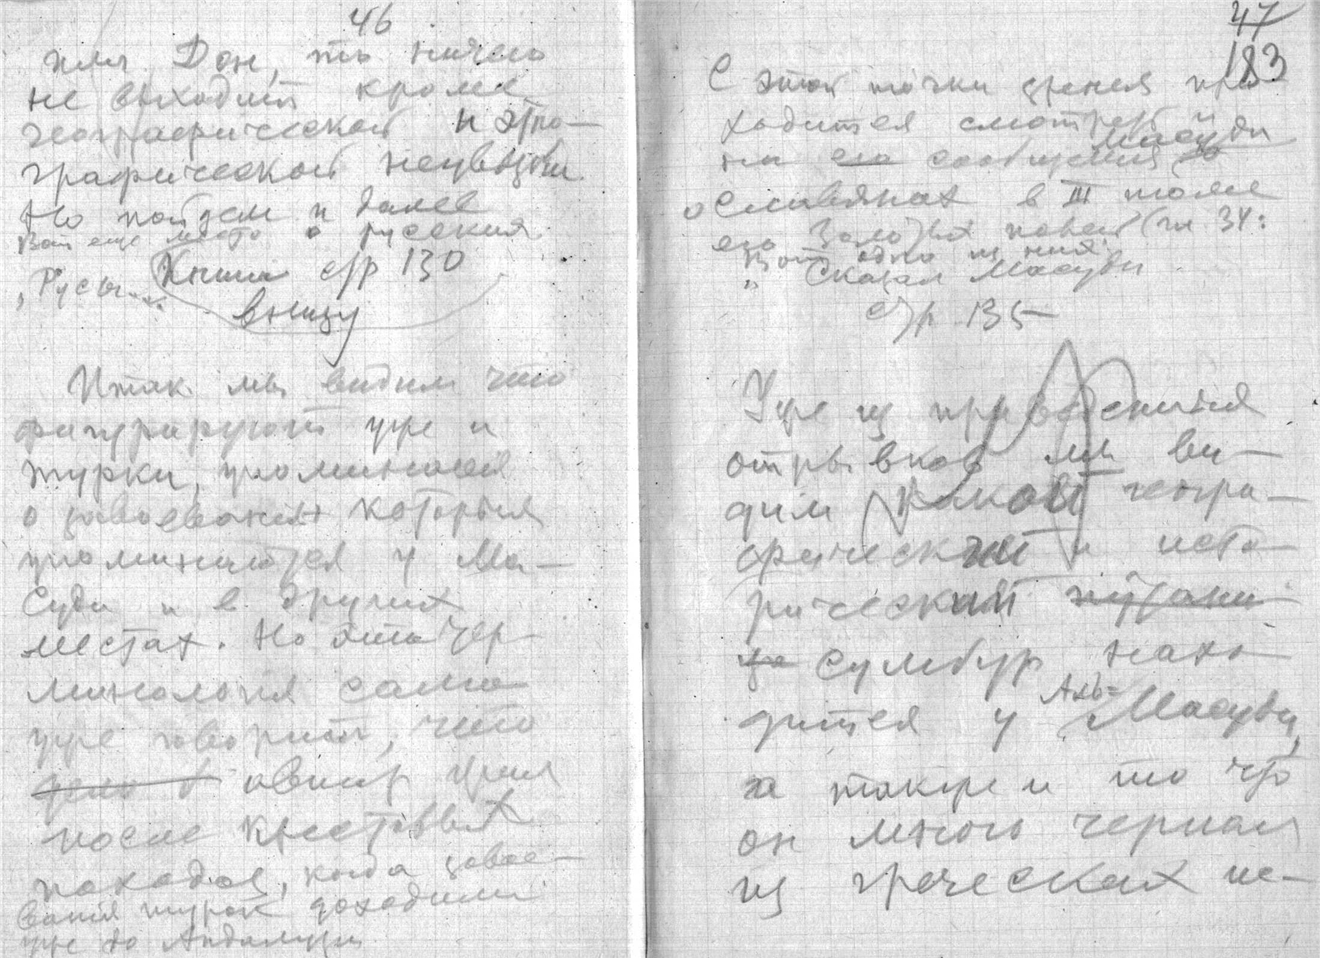 46
или Дон, то ничего
не выходит кроме
географической и этно-
графической неувязки.
Но пойдем и далее
Вот еще место о русских
„Русы....
Книга стр 130
внизу
Итак мы видим что
фигурируют уже и
турки, упоминания
о завоеваниях которых
упоминается у Ма-
суди и в других
местах. Но эта тер
минология сама
уже говорит, что
дело в автор жил
после крестовых
походов, когда завое-
вания турок доходили
уже до Андалузии
47
183
С этой точки зрения при
ходится смотреть и
на его сообщения Масуди
о Славянах в III томе
его Золотых (гл 34:
Вот одно из них
„Сказал Масуди
стр. 135
Уже из приведенных
отрывков мы ви-
дим какой геогра-
фический и исто-
рический путани
це сумбур нахо
дится у Аль-Масуди,
а также и то что
он много черпал
из греческих ис-